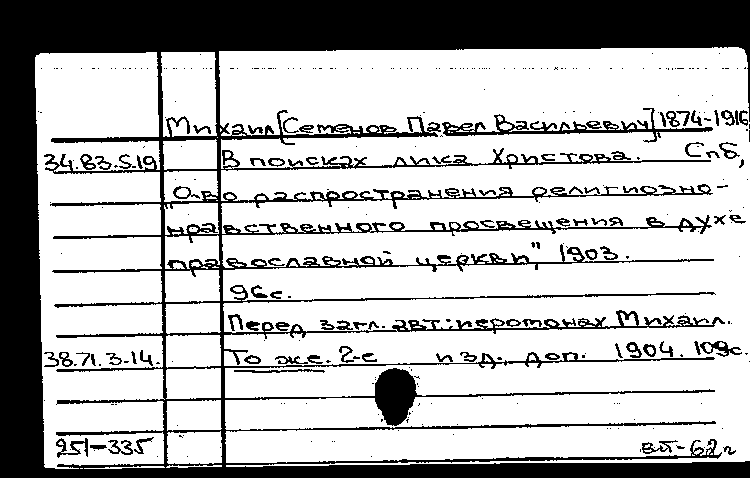 Михаил [Семенов Павел Васильевич] 1874-1916
34.83.5.19 В поисках лика Христова. Спб,
"О-во распространения религиозно-
нравственного просвещения в духе
православной церкви", 1903.
96с.
Перед загл. авт: иеромонах Михаил.
38.71.3.14. То же. 2-е изд., доп. 1904. 109с.
251-335 62г